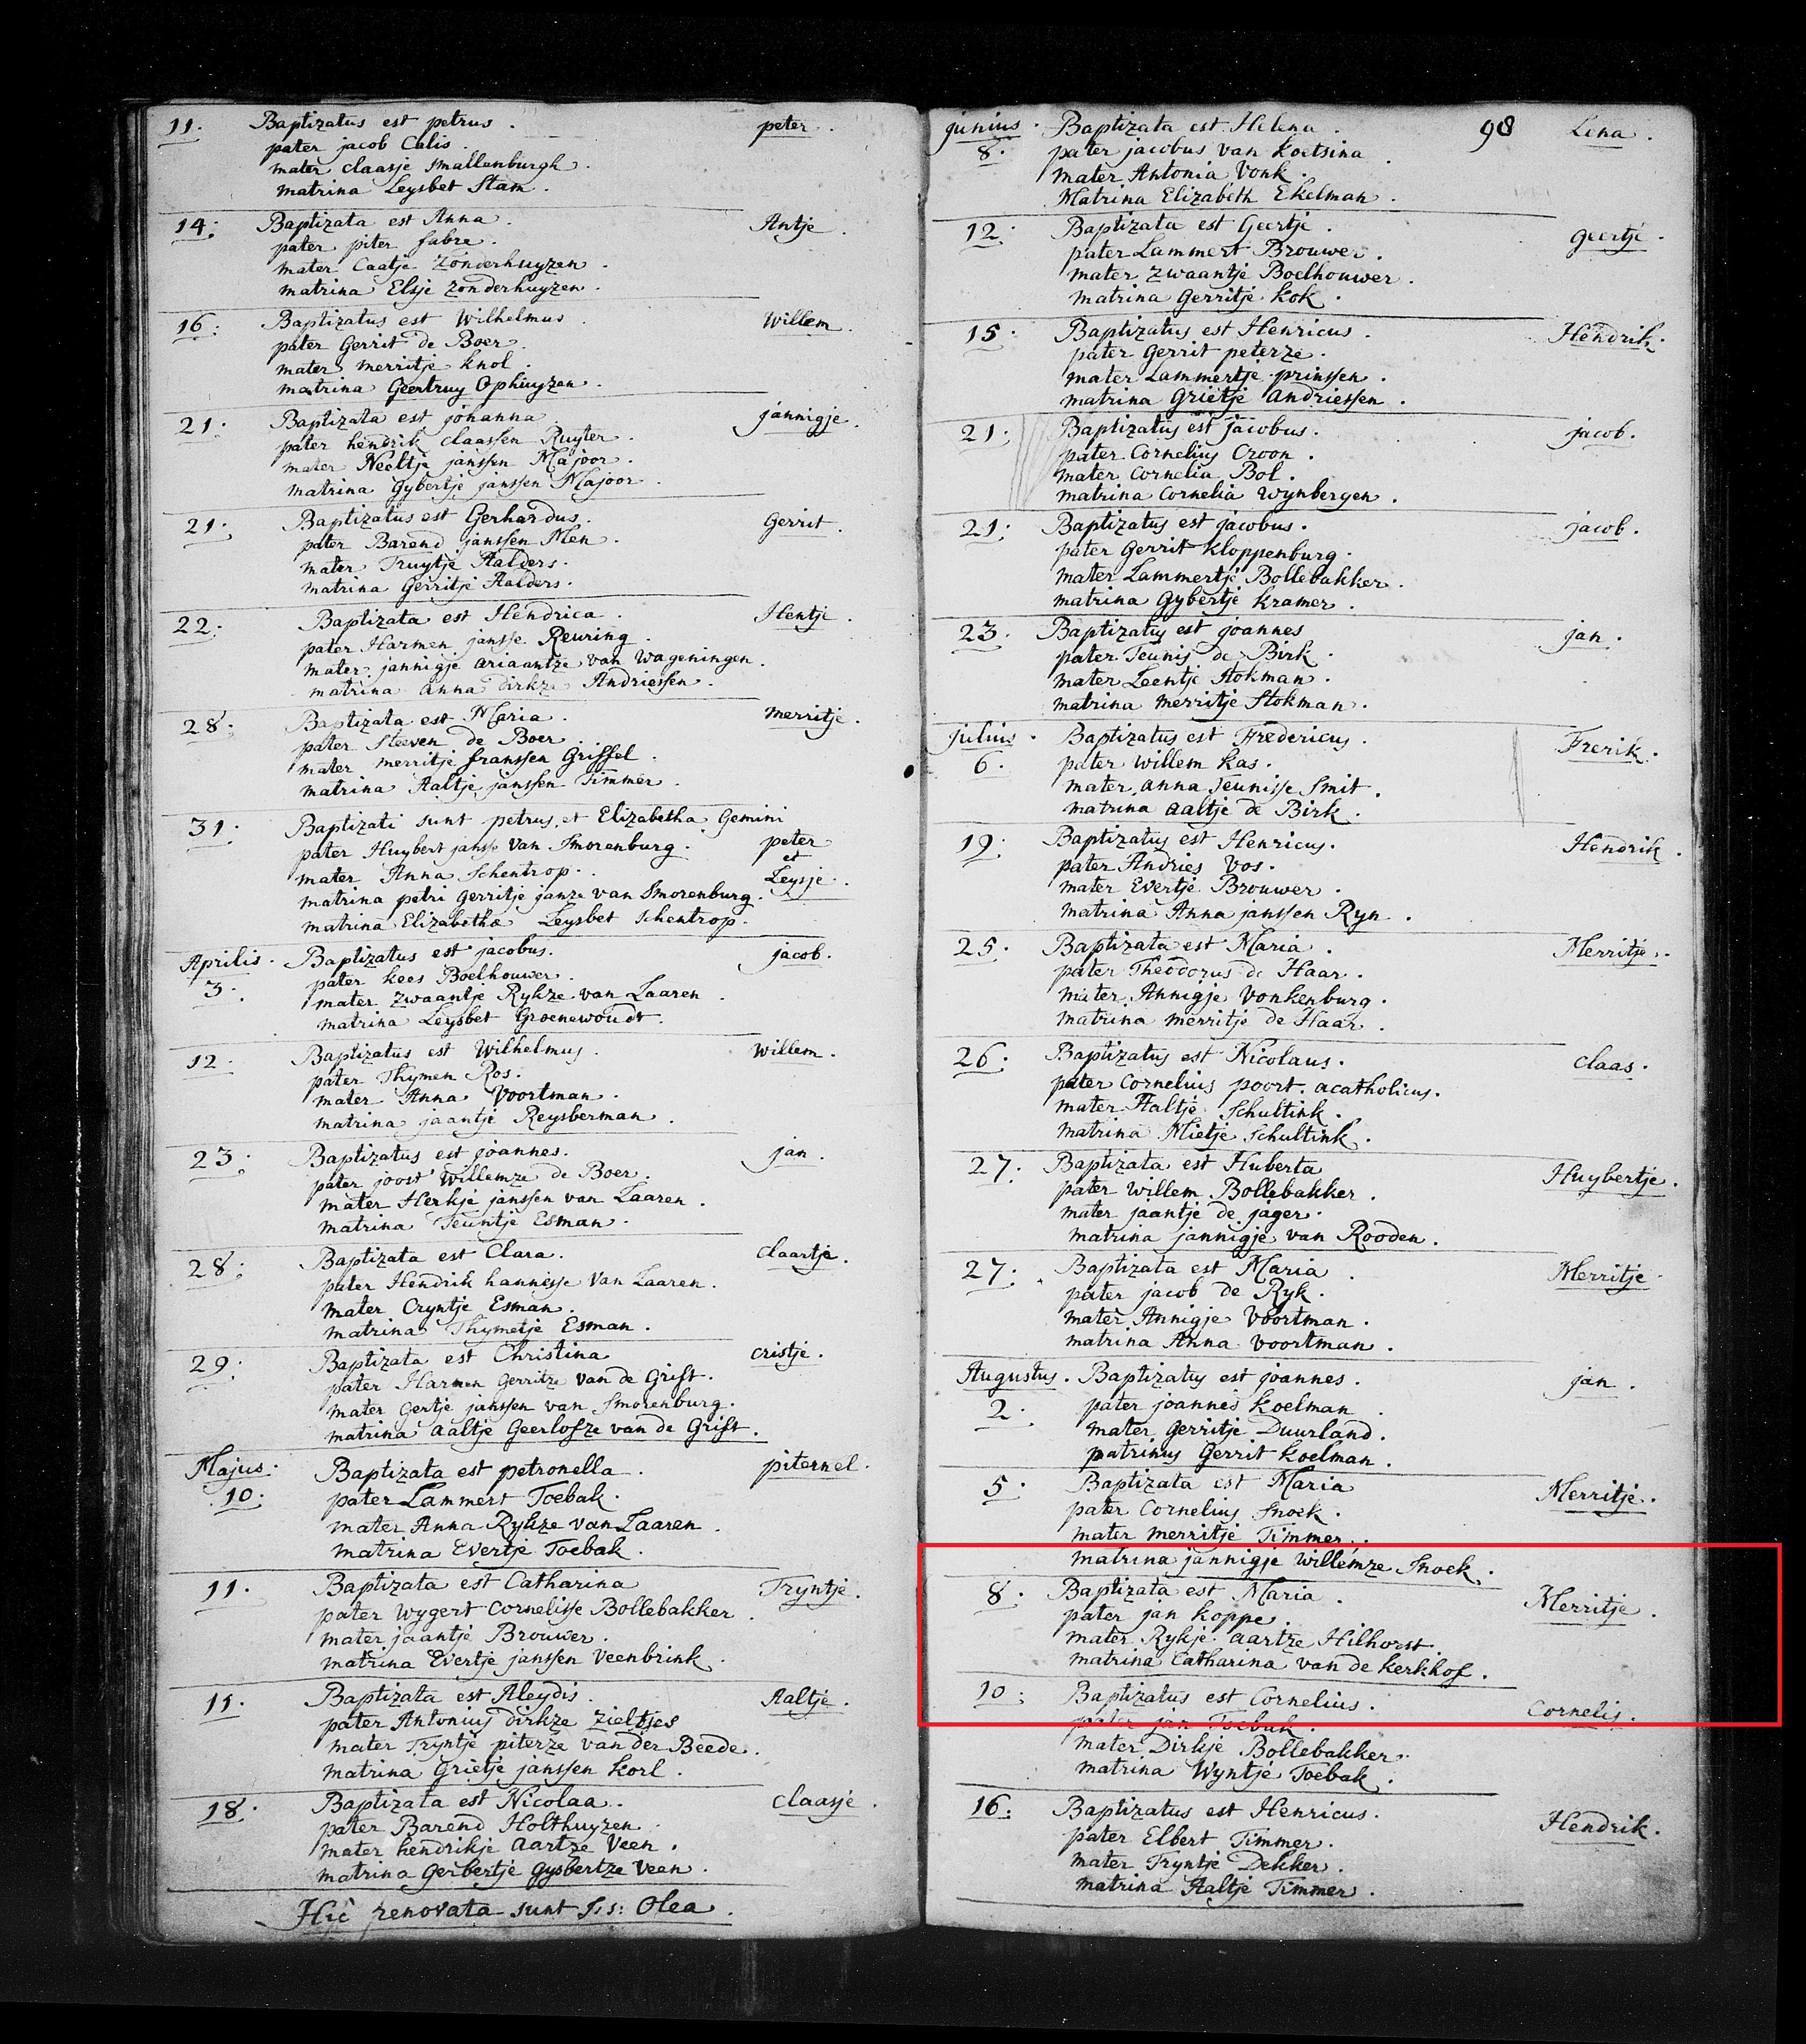 11. Baptizatus est petrus. peter.
pater jacob Calis.
mater claasje Smallenburgh.
matrina Leysbet Stam.
14: Baptizata est Anna. Antje.
pater piter fabre.
mater Caatje Zonderhuyzen.
matrina Elsje Zonderhuyzen.
16: Baptizatus est Wilhelmus. Willem.
pater Gerrit de Boer.
mater merritje knol.
matrina Geertruy Ophuyzen.
21. Baptizata est johanna. jannigje.
pater hendrik claassen Ruyter.
mater Neeltje janssen Majoor.
matrina Gybertje janssen Majoor.
21. Baptizatus est Gerhardus. Gerrit.
pater Barend janssen Men.
mater Truytje Aalders.
matrina Gerritje Aalders.
22: Baptizata est Hendrica. Hentje.
pater Harmen jansse Reuring.
mater jannigje ariaantze van Wageningen.
matrina anna dirkze Andriessen.
28: Baptizata est Maria. merritje.
pater Steeven de Boer.
mater merritje franssen Griffel.
matrina Aaltje janssen Timmer.
31. Baptizati sunt petrus et Elizabetha Gemini
pater Huybert jansse van Smorenburg. peter
et
mater Anna Schentrop. Leysje.
matrina petri gerritje janze van Smorenburg.
matrina Elizabetha Leysbet Schentrop.
Aprilis. Baptizatus est jacobus. jacob.
3. pater kees Boelhouwer.
mater zwaantje Rykze van Laaren.
matrina Leysbet Groenewoudt.
12. Baptizatus est Wilhelmus. Willem.
pater Thymen Ros.
mater Anna Voortman.
matrina jaantje Reysberman.
23. Baptizatus est joannes. jan.
pater joost Willemze de Boer.
mater Herkje janssen van Laaren.
matrina Teuntje Esman.
28. Baptizata est Clara. Claartje.
pater Hendrik hannesse van Laaren.
mater Cryntje Esman.
matrina Thymetje Esman.
29. Baptizata est Christina cristje.
pater Harmen Gerritze van de Grift.
mater Gertje janssen van Smorenburg.
matrina aaltje Geerlofze van de Grift.
Majus. Baptizata est petronella. piternel.
10. pater Lammert Toebak.
mater Anna Rykze van Laaren.
matrina Evertje Toebak.
11. Baptizata est Catharina Tryntje.
pater Wygert Cornelisse Bollebakker.
mater jaantje Brouwer.
matrina Evertje janssen Veenbrink.
11. Baptizata est Aleydis. Aaltje.
pater Antonius dirkze Zieltjes
mater Tryntje piterze van der Beede.
matrina Grietje janssen korl.
18. Baptizata est Nicolaa. claasje.
pater Barend Holthuyzen.
mater hendrikje aartze Veen.
matrina Gerbertje gysbertze Veen.
Hic renovata sunt S.s: Olea.
junius. Baptizata est Helena. 98 Lena.
8. pater jacobus van koetsina.
mater Antonia Vonk.
Matrina Elizabeth Ekelman.
12. Baptizata est Geertje. geertje.
pater Lammert Brouwer.
mater zwaantje Boelhouwer.
matrina Gerritje kok.
15. Baptizatus est Henricus. Hendrik.
pater Gerrit peterze.
mater Lammertje prinssen.
matrina Grietje andriessen.
21. Baptizatus est jacobus. jacob.
pater Cornelius Croon.
mater Cornelia Bol.
matrina Cornelia Wynbergen.
21. Baptizatus est jacobus. jacob.
pater Gerrit kloppenburg.
mater Lammertje Bollebakker.
matrina Gybertje kramer.
23. Baptizatus est joannes jan.
pater Teunis de Birk.
mater Leentje Stokman.
matrina merritje Stokman.
julius. Baptizatus est Fredericus. Frerik.
6. pater willem kas.
mater anna Teunisse Smit.
matrina aaltje de Birk.
19. Baptizatus est Henricus. Hendrik.
pater Andries Vos.
mater Evertje Brouwer.
matrina Anna janssen Ryn.
25. Baptizata est Maria. Merritje.
pater Theodorus de Haar.
mater Annigje Vonkenburg.
matrina merritje de Haar.
26. Baptizatus est Nicolaus. claas.
pater Cornelius poort. acatholicus.
mater Aaltje Schultink.
matrina Mietje Schultink.
27. Baptizata est Huberta Huybertje.
pater Willem Bollebakker.
mater jaantje de jager.
matrina jannigje van Rooden.
27. Baptizata est Maria. Merritje.
pater jacob de Ryk.
mater Annigje Voortman.
matrina Anna Voortman.
Augustus. Baptizatus est joannes. jan.
2. pater joannes koelman.
mater gerritje Duurland.
patrinus Gerrit koelman.
5. Baptizata est Maria Merritje.
pater Cornelius Snoek.
mater merritje Timmer.
matrina jannigje willemze Snoek.
8. Baptizata est Maria. Merritje.
pater jan koppe.
mater Rykje aartze Hilhorst.
matrina Catharina van de kerkhof.
10. Baptizatus est Cornelius. Cornelis.
pater jan Toebak.
mater Dirkje Bollebakker.
matrina Wyntje Toebak.
16. Baptizatus est Henricus. Hendrik.
pater Elbert Timmer.
mater Tryntje Dekker.
matrina Aaltje Timmer.